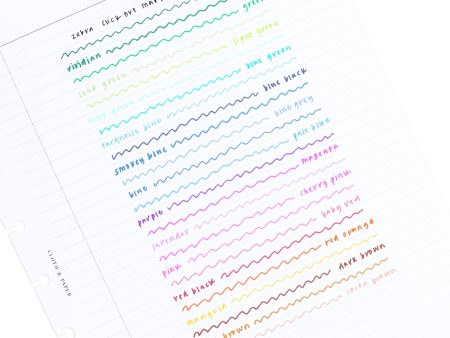 zebra click art mar
viridian
green
leaf green
light green
mint green
blue green
turquoise blue
blue black
smokey blue
blue grey
blue
pale blue
purple
magenta
lavender
cherry pink
pink
baby red
red black
red orange
marigold
dark brown
brown
cocoa brown
CLOTH & PAPER